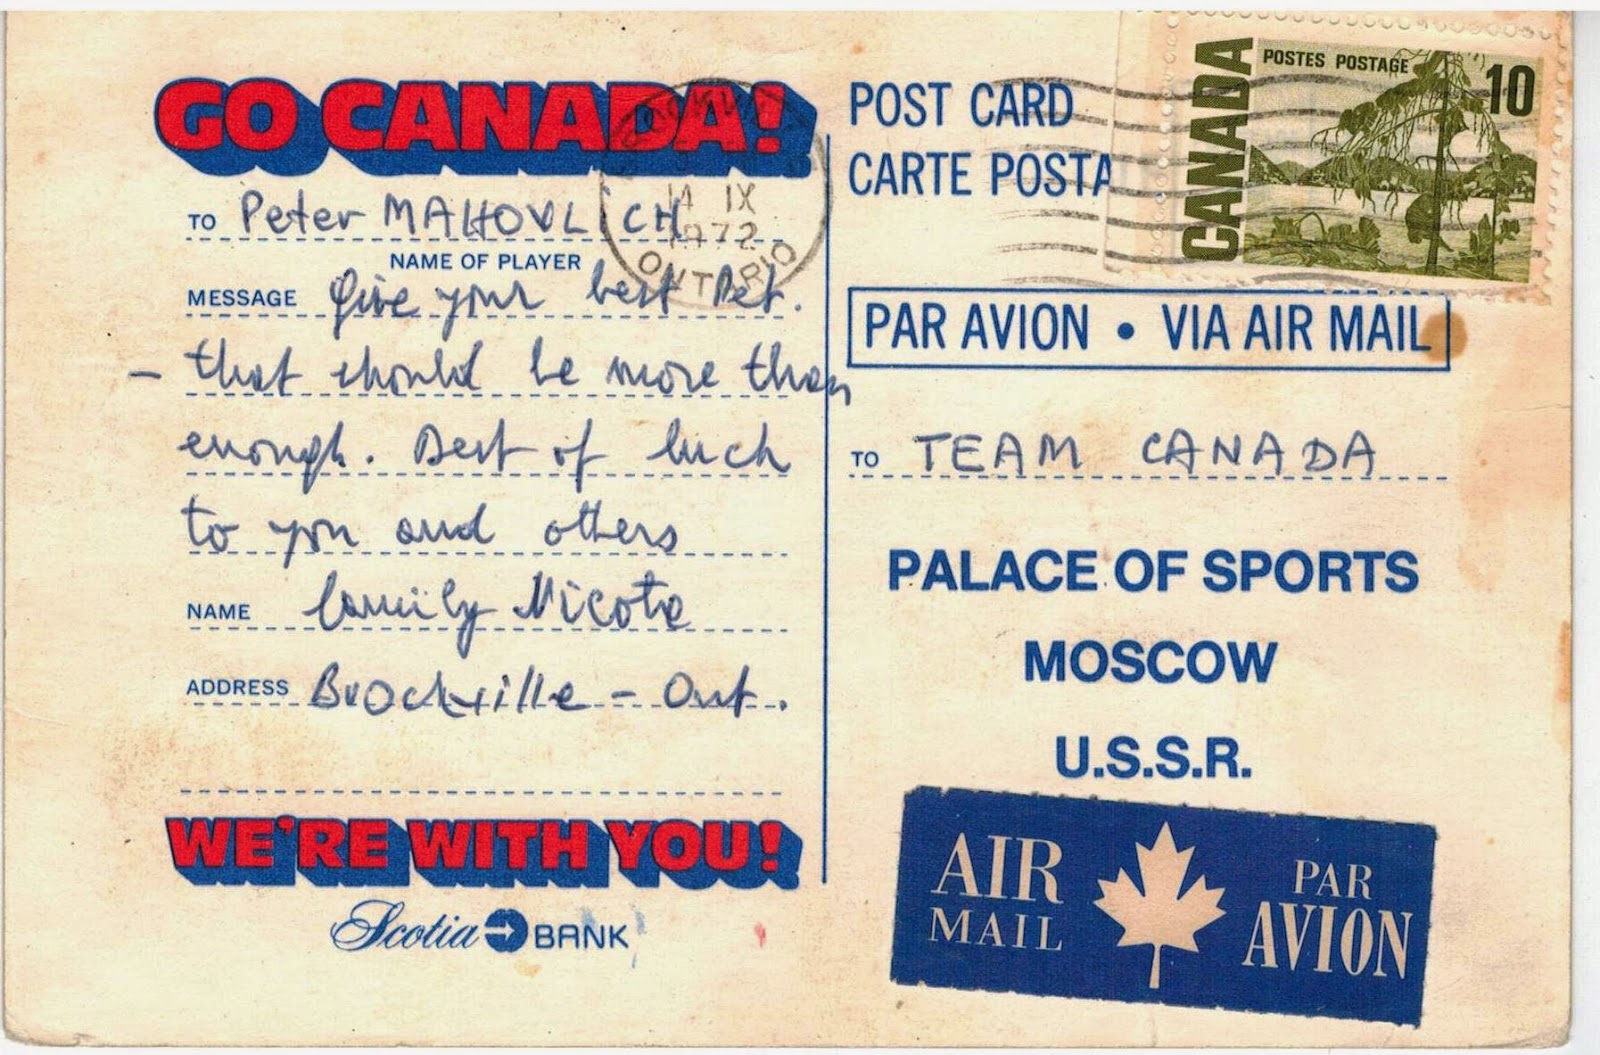 GO CANADA!
TO Peter MAHOVLICH
NAME OF PLAYER
MESSAGE Give your best Pet.
- that should be more than
enough. Best of luck
to you and others
NAME family Nicota
ADDRESS Brockville - Ont.
WE'RE WITH YOU!
Scotia BANK
BROCKVILLE
14 IX
1972
ONTARIO
POST CARD
CARTE POSTA
CANADA
POSTES POSTAGE 10
PAR AVION • VIA AIR MAIL
TO TEAM CANADA
PALACE OF SPORTS
MOSCOW
U.S.S.R.
AIR MAIL
PAR AVION